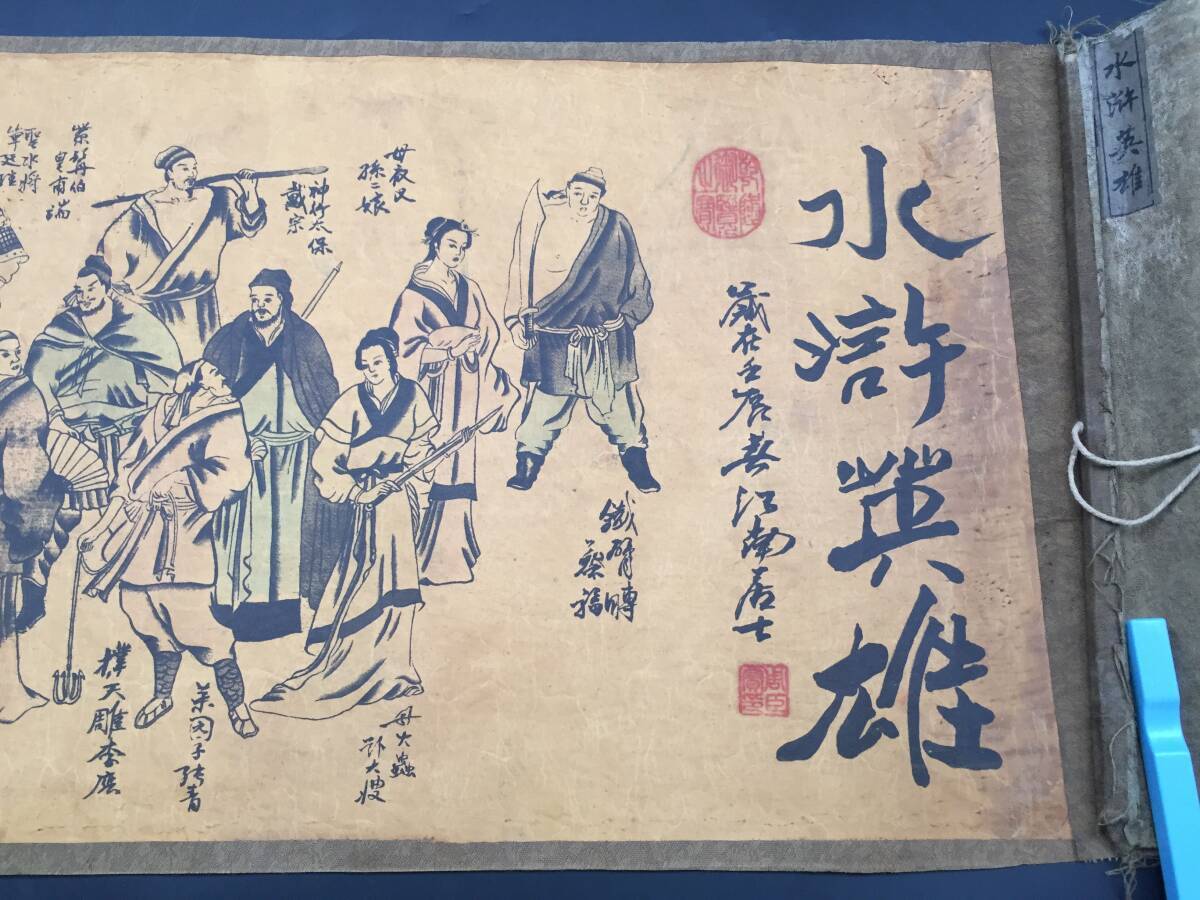 水滸英雄
水滸英雄
歲在壬辰春江南居士
鐵臂膊
蔡福
母夜叉
孫二娘
神行太保
戴宗
母大蟲
顾大嫂
菜园子张青
撲天雕李應
紫髯伯
皇甫端
聖水将
单廷珪